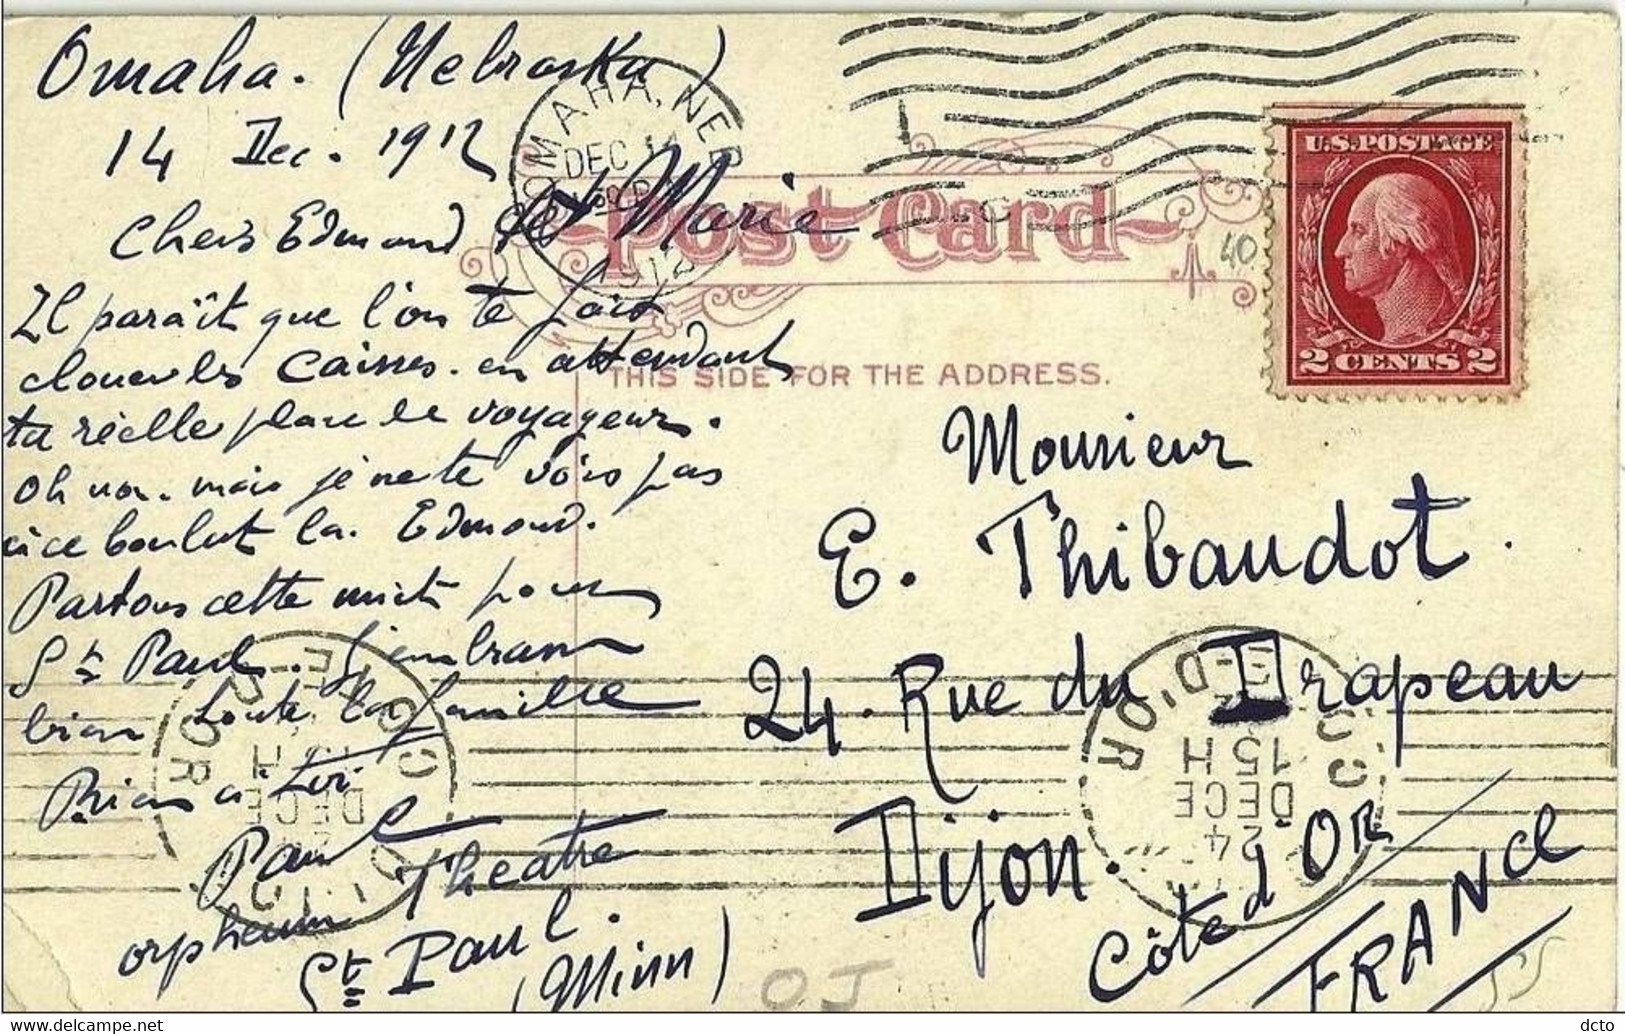 Omaha. (Nebraska)
14 Dec. 1912
Chers Edmond et Marie
Il paraît que l'on te fait
clouer les caisses. en attendant
ta réelle place de voyageur.
Oh non. mais je ne te vois pas
à ce boulot la. Edmond.
Partons cette nuit pour
St Paul. J'embrasse
bien toute la famille
Bien à toi
Paul
orpheum Theatre
St Paul.
(Minn)
OMAHA, NEB
DEC 14
1912
Post Card
THIS SIDE FOR THE ADDRESS.
U.S. POSTAGE
2 CENTS 2
40
Monsieur
E. Thibaudot.
24. Rue du Drapeau
Dijon.
Côte d'Or
FRANCE
CÔTE-D'OR
15 H
24
DECE
OJ
dcto